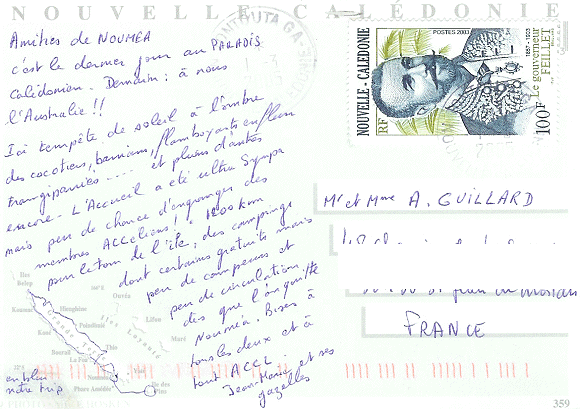 NOUVELLE CALÉDONIE
Amitiés de NOUMÉA
c'est le dernier jour au PARADIS
Calédonien. Demain : à nous
l'Australie !!
Ici tempête de soleil à l'ombre
des cocotiers, banians, flamboyants en fleurs
frangipaniers.... et pleins d'autres
encore - L'Accueil a été ultra sympa
mais peu de chance d'engranger des
membres ACCéliens, 1200 km
pour le tour de l'île, des campings
dont certains gratuits mais
peu de campeurs et
peu de circulation
dès que l'on quitte
Nouméa. Bises à
tous les deux et à
tout ACCL
Jean-Marie et ses
gazelles
en bleu
notre trip
NOUVELLE-CALÉDONIE
RF
POSTES 2003
1857 - 1903
Le gouverneur
FEILLET
100F
Mr et Mme A. GUILLARD
FRANCE
Iles
Belep
Ouvéa
Lifou
Maré
Grande Terre
Iles Loyauté
Koumac
Hienghène
Poindimié
Koné
Bourail
La Foa
Thio
Nouméa
Yaté
Phare Amédée
Ile des
Pins
359